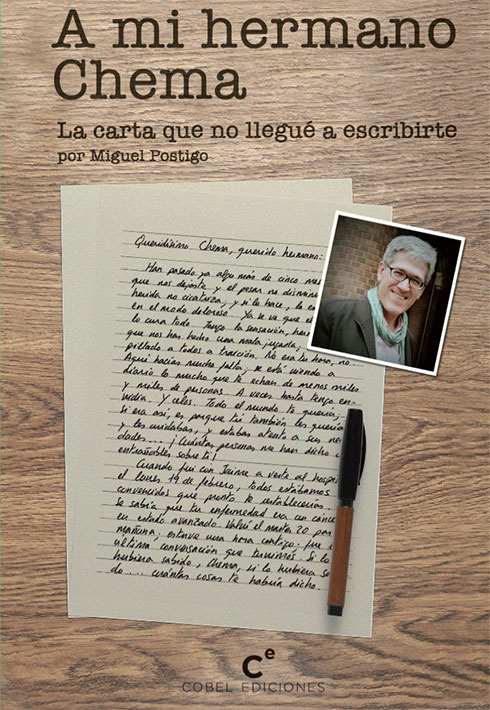 A mi hermano
Chema
La carta que no llegué a escribirte
por Miguel Postigo
Queridísimo Chema, querido hermano:
Han pasado ya algo más de cinco me
que nos dejaste y el pesar no disminu
herida no cicatriza, y si lo hace, la
en el modo doloroso. Ya se ve que el
lo cura todo. Tengo la sensación,
que nos han hecho una mala jugada,
pillado a todos a traición. No era tu hora, no
Aquí hacías mucha falta, se está viendo a
diario lo mucho que te echan de menos miles
y miles de personas. A veces hasta tengo en-
vidia. Y celos. Todo el mundo te quería,
si era así, es porque tú también les querías
y les cuidabas, y estabas atento a sus ne
dades... ¡Cuántas personas me han dicho
entrañables sobre ti!
Cuando fui con Jaime a verte al hospi
el lunes 19 de febrero, todos estábamos
convencidos que pronto te establecerías
se sabía que tu enfermedad era un cánce
en estado avanzado. Volví el martes 20 por
mañana, estuve una hora contigo. Fue
última conversación que tuvimos. Si lo
hubiera sabido, Chema, si lo hubiera sa
do... cuántas cosas te habría dicho.
Ce
COBEL EDICIONES